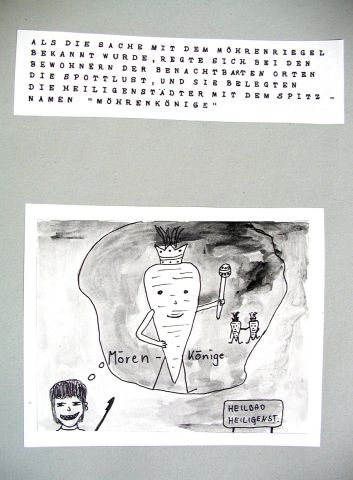 ALS DIE SACHE MIT DEM MÖHRENRIEGEL
BEKANNT WURDE, REGTE SICH BEI DEN
BEWOHNERN DER BENACHTBARTEN ORTEN
DIE SPOTTLUST, UND SIE BELEGTEN
DIE HEILIGENSTÄDTER MIT DEM SPITZ-
NAMEN "MÖHRENKÖNIGE"
Mören - Könige
HEILBAD
HEILIGENST.